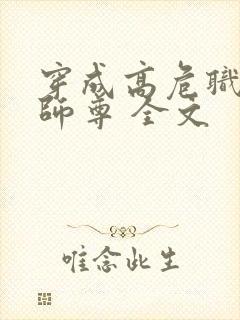 穿成高危職
師尊 全文
唯念此生